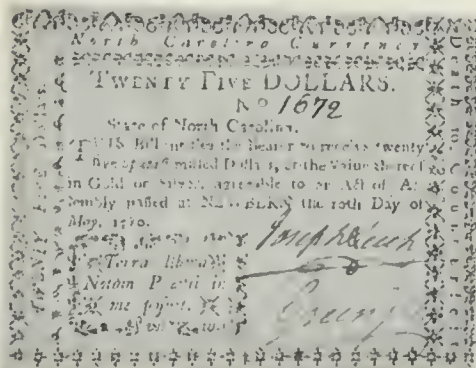 North Carolina Currency
TWENTY FIVE DOLLARS.
No 1672
State of North Carolina.
THIS Bill entitles the Bearer to receive twenty
five Spanish milled Dollars, or the Value thereof
in Gold or Silver, agreeable to an Act of As
sembly passed at NEWBERN the 10th Day of
May, 1780.
Terra libera
me
Death to Counterfeit
Twenty Five Dollars
Joseph Leech